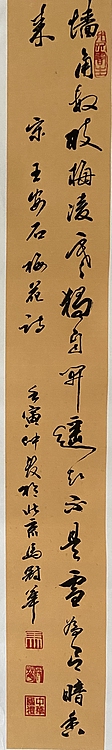 墙角数枝梅凌寒独自开遥知不是雪为有暗香
来
宋王安石梅花诗
壬寅仲夏于北京马尉华